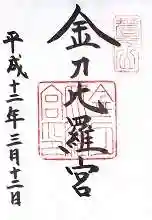 金刀比羅宮
平成十二年三月十二日